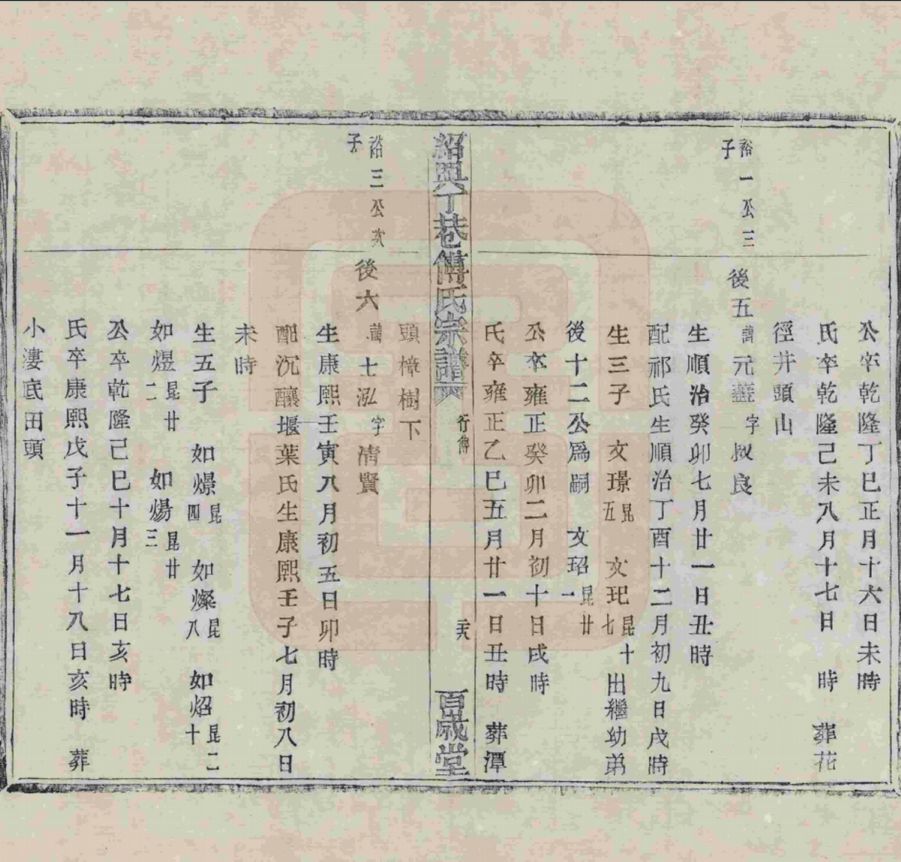 公卒乾隆丁巳正月十六日未時
氏卒乾隆己未八月十七日　時　葬花
徑井頭山
裕一公三子
後五諱元　字　良
生順治癸卯七月廿一日丑時
配祁氏生順治丁酉十二月初九日戌時
生三子　文璟昆五　文玘昆十七出繼幼弟
後十二公爲嗣　文玿昆廿一
公卒雍正癸卯二月初十日戌時
氏卒雍正乙巳五月廿一日丑時　葬潭
頭樟樹下
紹興丁巷傅氏宗譜　行傳　百歲堂
裕三公次子
後六諱士泓字清賢
生康熙壬寅八月初五日卯時
配沉釀堰葉氏生康熙壬子七月初八日
未時
生五子　如燝昆四　如燦昆八　如炤昆二十
如煜昆廿二　如煬昆廿三
公卒乾隆己巳十月十七日亥時
氏卒康熙戊子十一月十八日亥時　葬
小漊底田頭